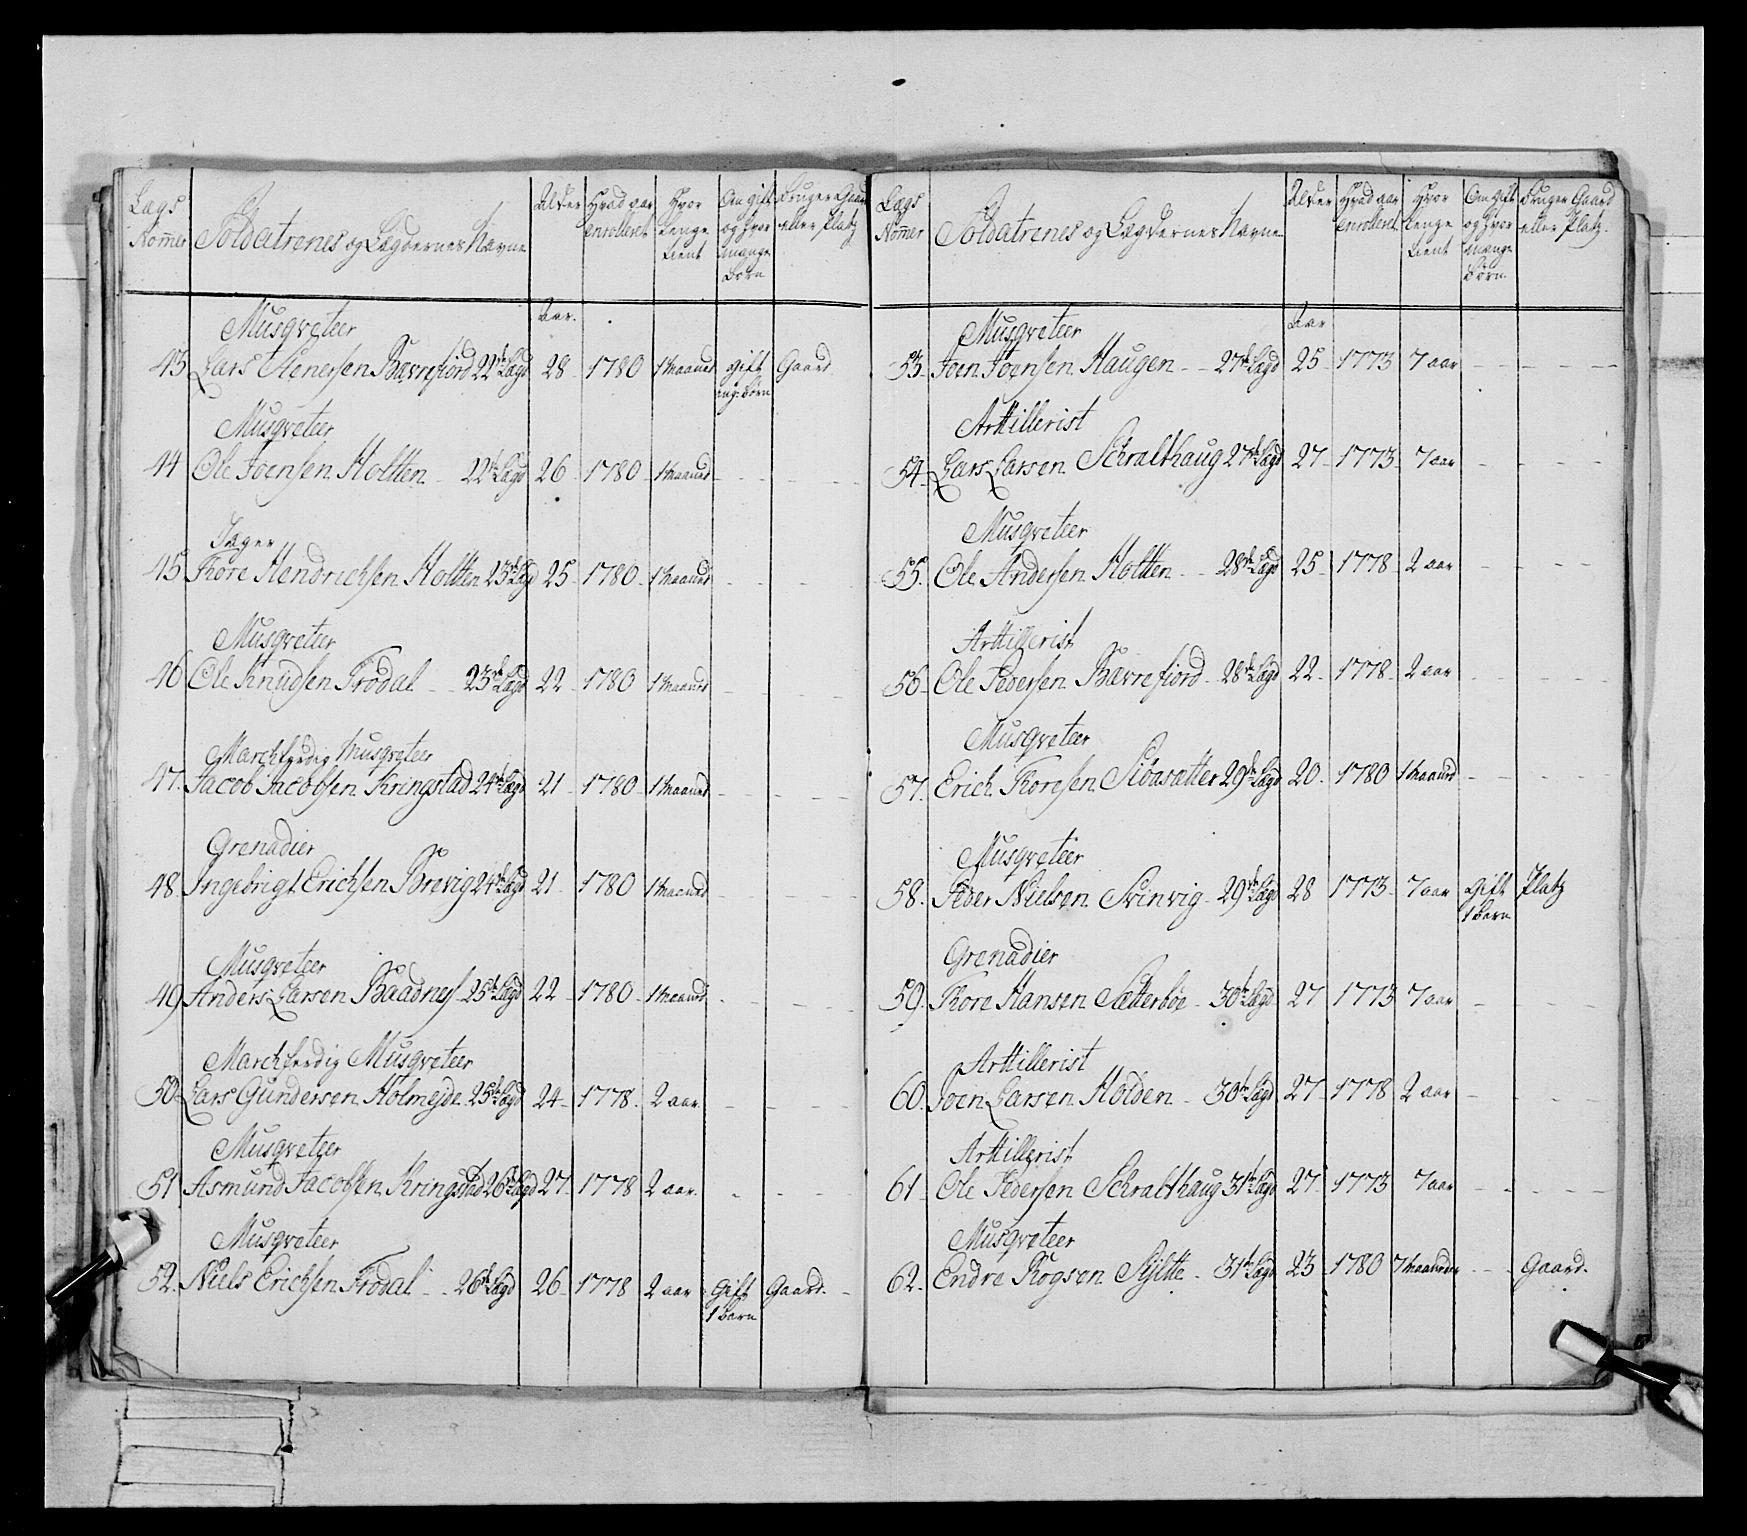 Lægs Nommer | Soldaternes og Lægdernes Navne | Alder | Hvad aar enrolleret | Hvor lenge tient | Om gift og hvor mange børn | Bruger Gaard eller Platz
Aar.
Musqveteer
43 Lars Stenersen Bævrefiord 22de Lægd 28 1780 1 Maaned gift ing: børn Gaard
Musqveteer
44 Ole Joensen Holtten 22de Lægd 26 1780 1 Maaned
Jæger
45 Thore Hendrichsen Holtten 23de Lægd 25 1780 1 Maaned
Musqveteer
46 Ole Knudsen Frødal 23de Lægd 22 1780 1 Maaned
Marchferdig Musqveteer
47. Jacob Jacobsen Kringstad 24de Lægd 21 1780 1 Maaned
Grenadier
48 Ingebrigt Erichsen Brevig 24de Lægd 21 1780 1 Maaned
Musqveteer
49 Anders Larsen Baadnes 25de Lægd 22 1780 1 Maaned
Marchferdig Musqveteer
50 Lars Gundersen Holmejde 25de Lægd 24 1778 2 aar
Musqveteer
51 Asmund Jacobsen Kringstad 26de Lægd 27 1778 2 aar
Musqveteer
52. Niels Erichsen Frødal 26de Lægd 26 1778 2 aar Gift 1 barn Gaard.
Lægs Nommer | Soldaternes og Lægdernes Navne | Alder | Hvad aar enrolleret | Hvor lenge tient | Om gift og hvor mange børn | Bruger Gaard eller Platz.
Aar
Musqveteer
53. Joen Joensen Haugen 27de Lægd 25 1773 7 aar
Arttillerist
54 Lars Larsen Schralthaug 27de Lægd 27 1773 7 aar
Musqveteer
55. Ole Andersen Holtten 28de Lægd 25 1778 2 aar
Arttillerist
56 Ole Pedersen Bævrefiord 28de Lægd 22 1778 2 aar
Musqveteer
57. Erich Thoresen Siøasætter 29de Lægd 20 1780 1 Maaned
Musqveteer
58. Peder Nielsen Svinvig 29de Lægd 28 1773 7 aar Gift 1 barn Platz
Grenadier
59. Thore Hansen Sætterbøe 30te Lægd 27 1773 7 aar
Arttillerist
60. Joen Larsen Holden 30te Lægd 27 1778 2 aar
Arttillerist
61 Ole Pedersen Schralthaug 31te Lægd 27 1773 7 aar
Musqveteer
62. Endre Rogsen 31te Lægd 23 1780 7 Maaneder Gaard.